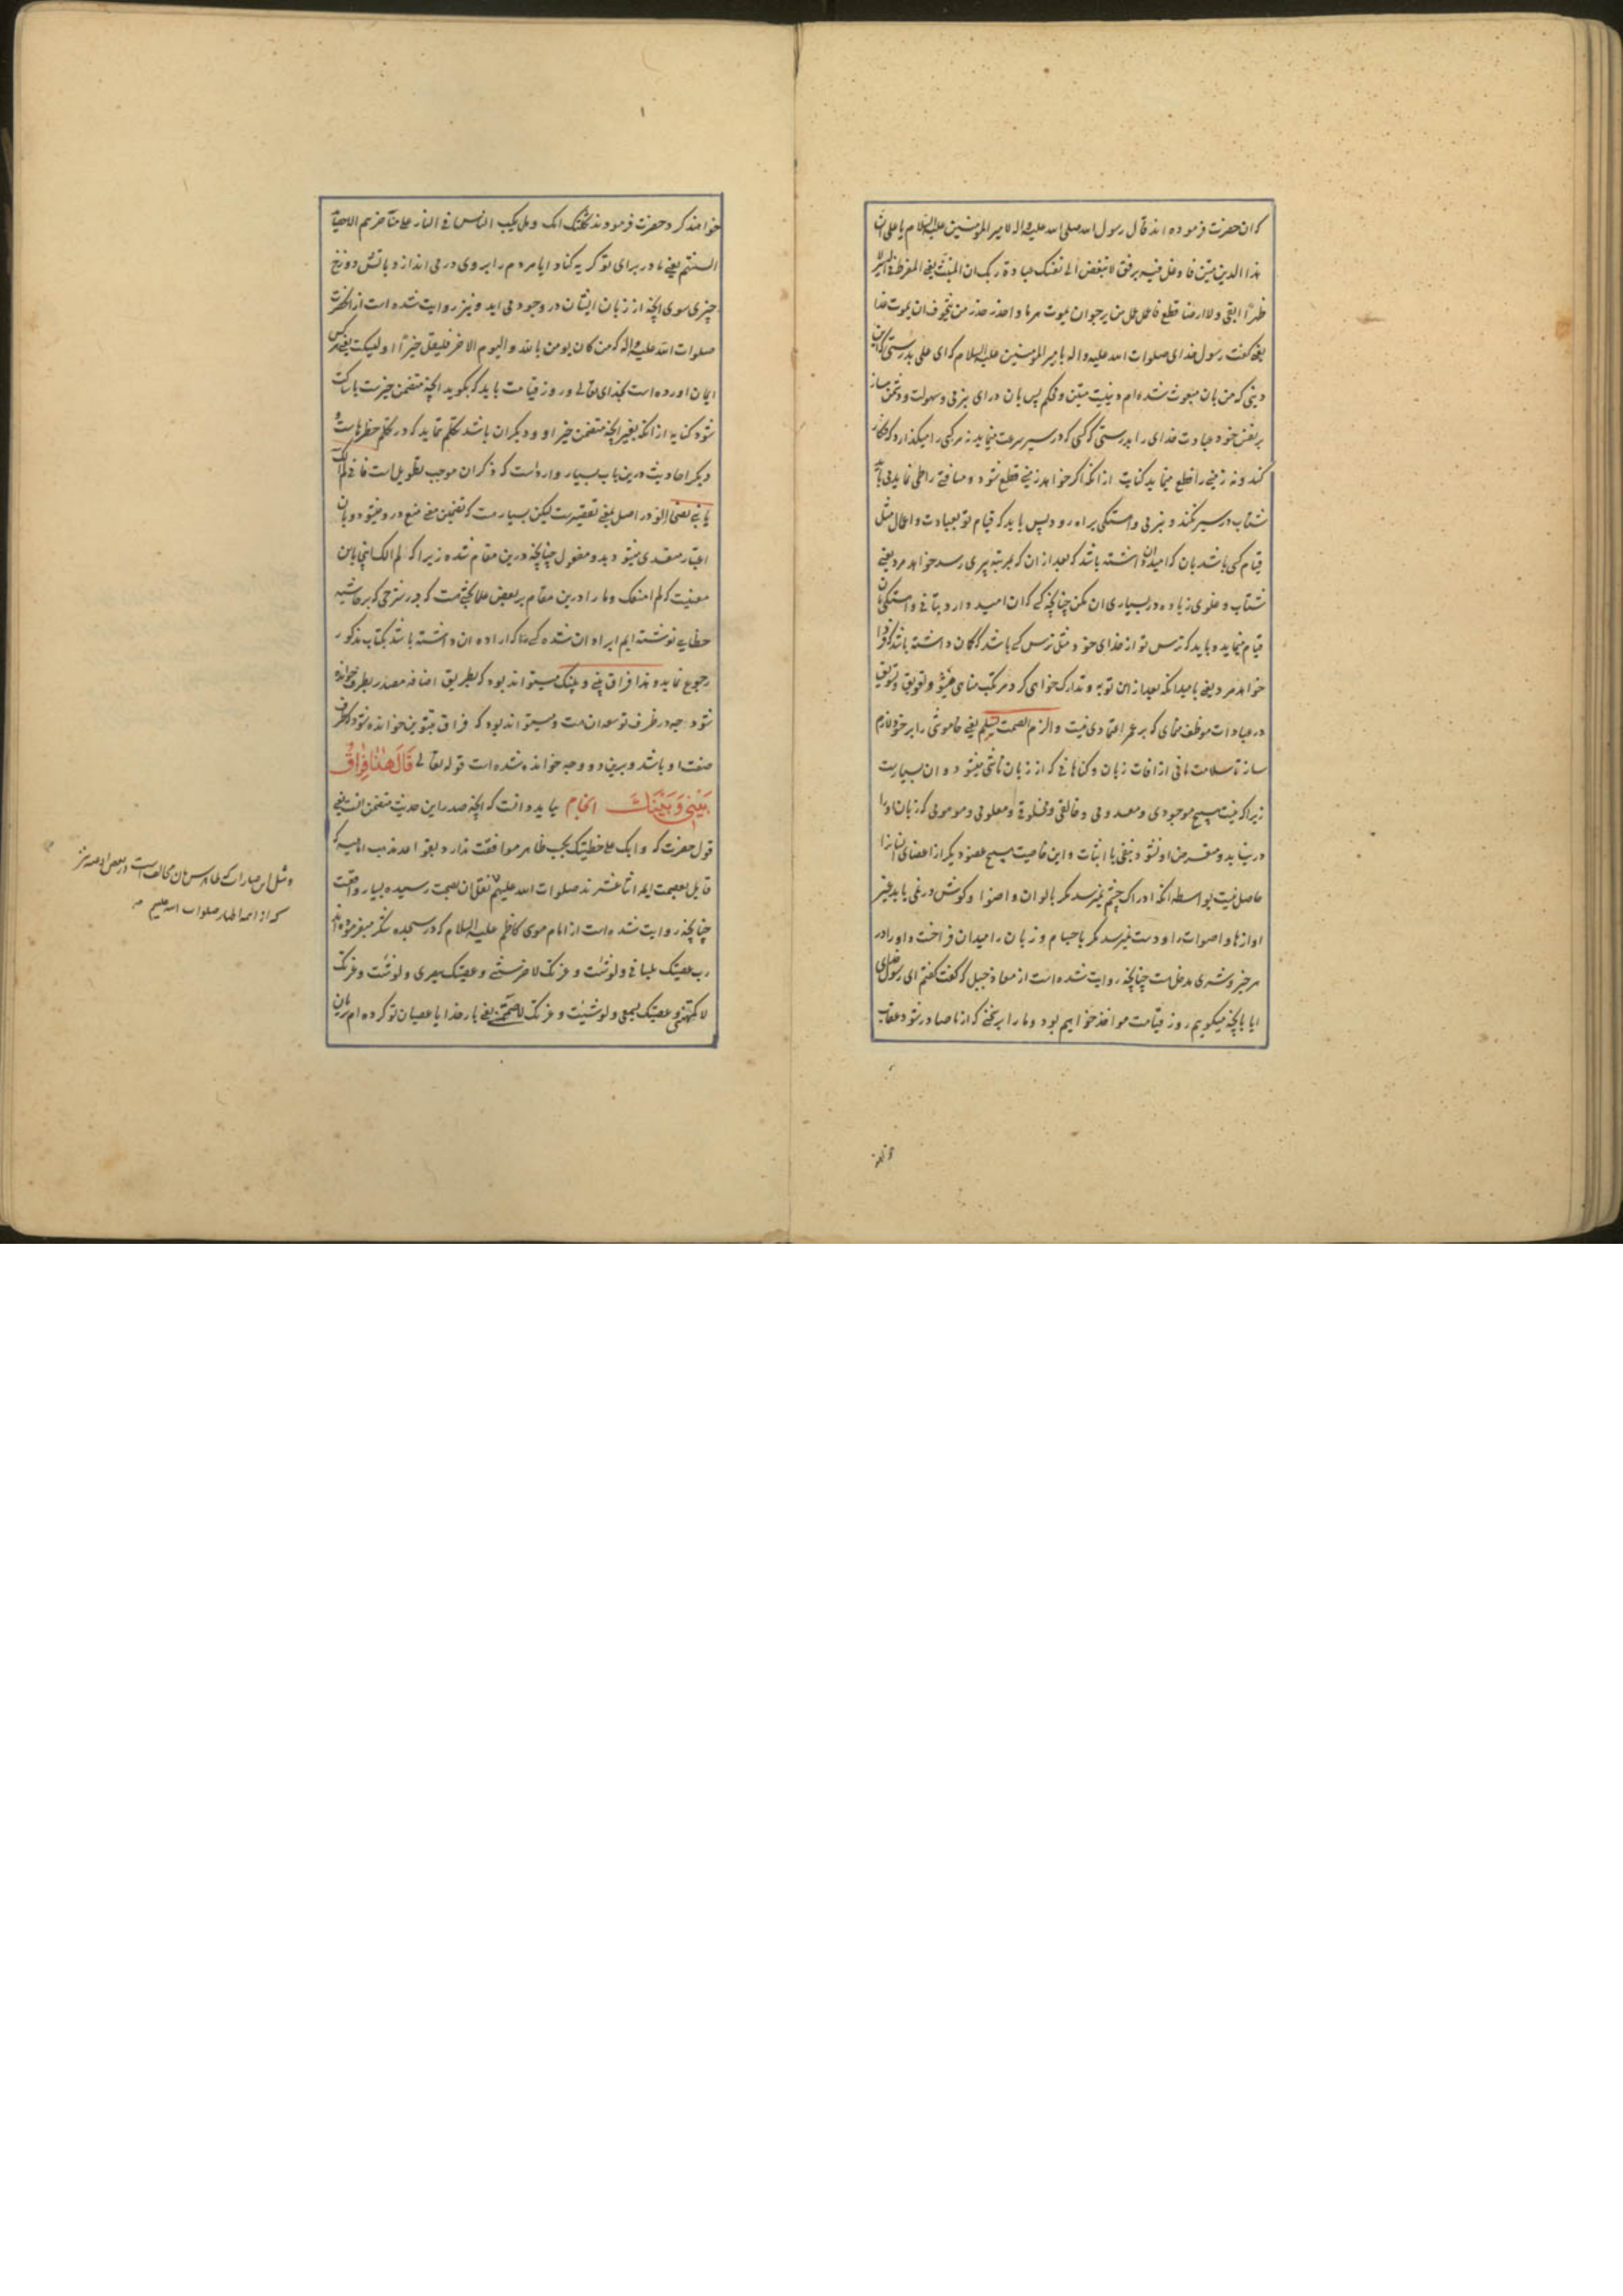 که ان حضرت فرموده اند قال رسول الله صلی الله علیه و اله لامیر المؤمنین علیه السلام یا علی ان
هذا الدین متین فاوغل فیه برفق لا تبغض الی نفسک عبادة ربک ان المنبت یعنی المفرط فی السیر لا
ظهرًا ابقی و لا ارضا قطع فاعمل عمل من یرجو ان یموت هرما و احذر حذر من یتخوف ان یموت غدا
یعنی گفت رسول خدای صلوات الله علیه و اله بامیر المؤمنین علیه السلام که ای علی بدرستی که این
دینی که من بان مبعوث شده ام دینیست متین و محکم پس بان در ای بنرمی و سهولت و دشمن مساز
بر نفس خود عبادت خدای را بدرستی که کسی که در سیر سرعت مینماید نه مرکبی را میگذارد که کار
کند و نه زمینی را قطع مینماید کنایت از انکه اگر خواهد زمینی قطع شود و مسافتی را طی نماید می باید
شتاب در سیر نکند و بنرمی و اهستگی براه رود پس باید که قیام تو بعبادت و اعمال مثل
قیام کسی باشد بان که امید ان داشته باشد که بعد از ان که بمرتبه پیری رسد خواهد مرد یعنی
شتاب و غلوی زیاده در بسیاری ان مکن چنانچه کسی که ان امید دارد بتانی و اهستگی بان
قیام مینماید و باید که ترس تو از خدای خود مثل ترس کسی باشد که گمان داشته باشد که فردا
خواهد مرد یعنی بامید انکه بعد از این توبه و تدارک خواهی کرد مرتکب مناهی مشو و تعویق و تسویف
در عبادات موظف منمای که بر عمر اعتمادی نیست و الزم الصمت تسلم یعنی خاموشی را بر خود لازم
ساز تا سلامت مانی از افات زبان و گناهانی که از زبان ناشی میشود و ان بسیارست
زیرا که نیست هیچ موجودی و معدومی و خالقی و مخلوقی و معلومی و موهومی که زبان او را
در نیابد و متعرض او نشود بنفی یا اثبات و این خاصیت هیچ عضو دیگر از اعضای انسان را
حاصل نیست بواسطه انکه ادراک چشم نمیرسد مگر بالوان و اضوا و گوش در نمی یابد غیر
اوازها و اصوات را و دست نمیرسد مگر باجسام و زبان را میدان فراخست و او را در
هر خیر و شری مدخلست چنانچه روایت شده است از معاذ جبل که گفت گفتم ای رسول خدای
ایا بانچه میگوییم روز قیامت مواخذ خواهیم بود و ما را بر سخنی که از ما صادر شود عقاب
خواهند کرد حضرت فرمودند ثکلتک امک و هل یکب الناس فی النار علی مناخرهم الا حصاید
السنتهم یعنی مادر برای تو گریه کناد ایا مردم را بروی در می اندازد باتش دوزخ
چیزی سوی انچه از زبان ایشان در وجود می اید و نیز روایت شده است از انحضرت
صلوات الله علیه و اله که من کان یومن بالله و الیوم الاخر فلیقل خیرًا او لیسکت یعنی هر کس
ایمان اورده است بخدای تعالی و روز قیامت باید که بگوید انچه متضمن خیرست یا ساکت
شود کنایه از انکه بغیر انچه متضمن خیر او و دیگران باشد تکلم ننماید که در تکلم خطرهاست و
دیگر احادیث درین باب بسیار وارد است که ذکر ان موجب تطویل است فانی لم الک
یا بنی نصحًا الو در اصل بمعنی تقصیرست لیکن بسیارست که تضمین معنی منع در و میشود و بان
اعتبار متعدی میشود بدو مفعول چنانچه درین مقام شده زیرا که لم الک اینجا باین
معنیست که لم امنعک و ما را درین مقام بر بعض علما بحثیست که در شرحی که بر حاشیه
خطایی نوشته ایم ایراد ان شده کسی را که اراده ان داشته باشد بکتاب مذکور
رجوع نماید و هذا فراق بینی و بینک میتواند بود که بطریق اضافه مصدر بظرف خوانده
شود چه در ظرف توسعه ان هست و میتواند بود که فراق بتنوین خوانده شود که ظرف
صفت او باشد و برین دو وجه خوانده شده است قوله تعالی قَالَ هٰذَا فِرَاقُ
بَيْنِي وَ بَيْنِكَ انجام بباید دانست که انچه صدر این حدیث متضمن انست یعنی
قول حضرت که و ابک علی خطیئتک بحسب ظاهر موافقت ندارد بقواعد مذهب امامیه که
قایل بعصمت ایمه اثنا عشرند صلوات الله علیهم و نقل ان بصحت رسیده بسیار واقعست
چنانچه روایت شده است از امام موسی کاظم علیه السلام که در سجده شکر میفرموده اند
رب عصیتک بلسانی و لو شئت و عزتک لاخرستنی و عصیتک ببصری و لو شئت و عزتک
لاکمهتنی و عصیتک بسمعی و لو شئت و عزتک لاصممتنی یعنی بار خدایا عصیان تو کرده ام بزبان
و مثل این عبارات که ظاهرش بان مخالف است در بعض ادعیه نیز
که از ائمه اطهار صلوات الله علیهم